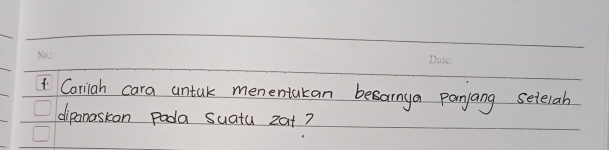 No.: Date:
1. Carilah cara untuk menentukan besarnya panjang setelah
dipanaskan pada suatu zat?